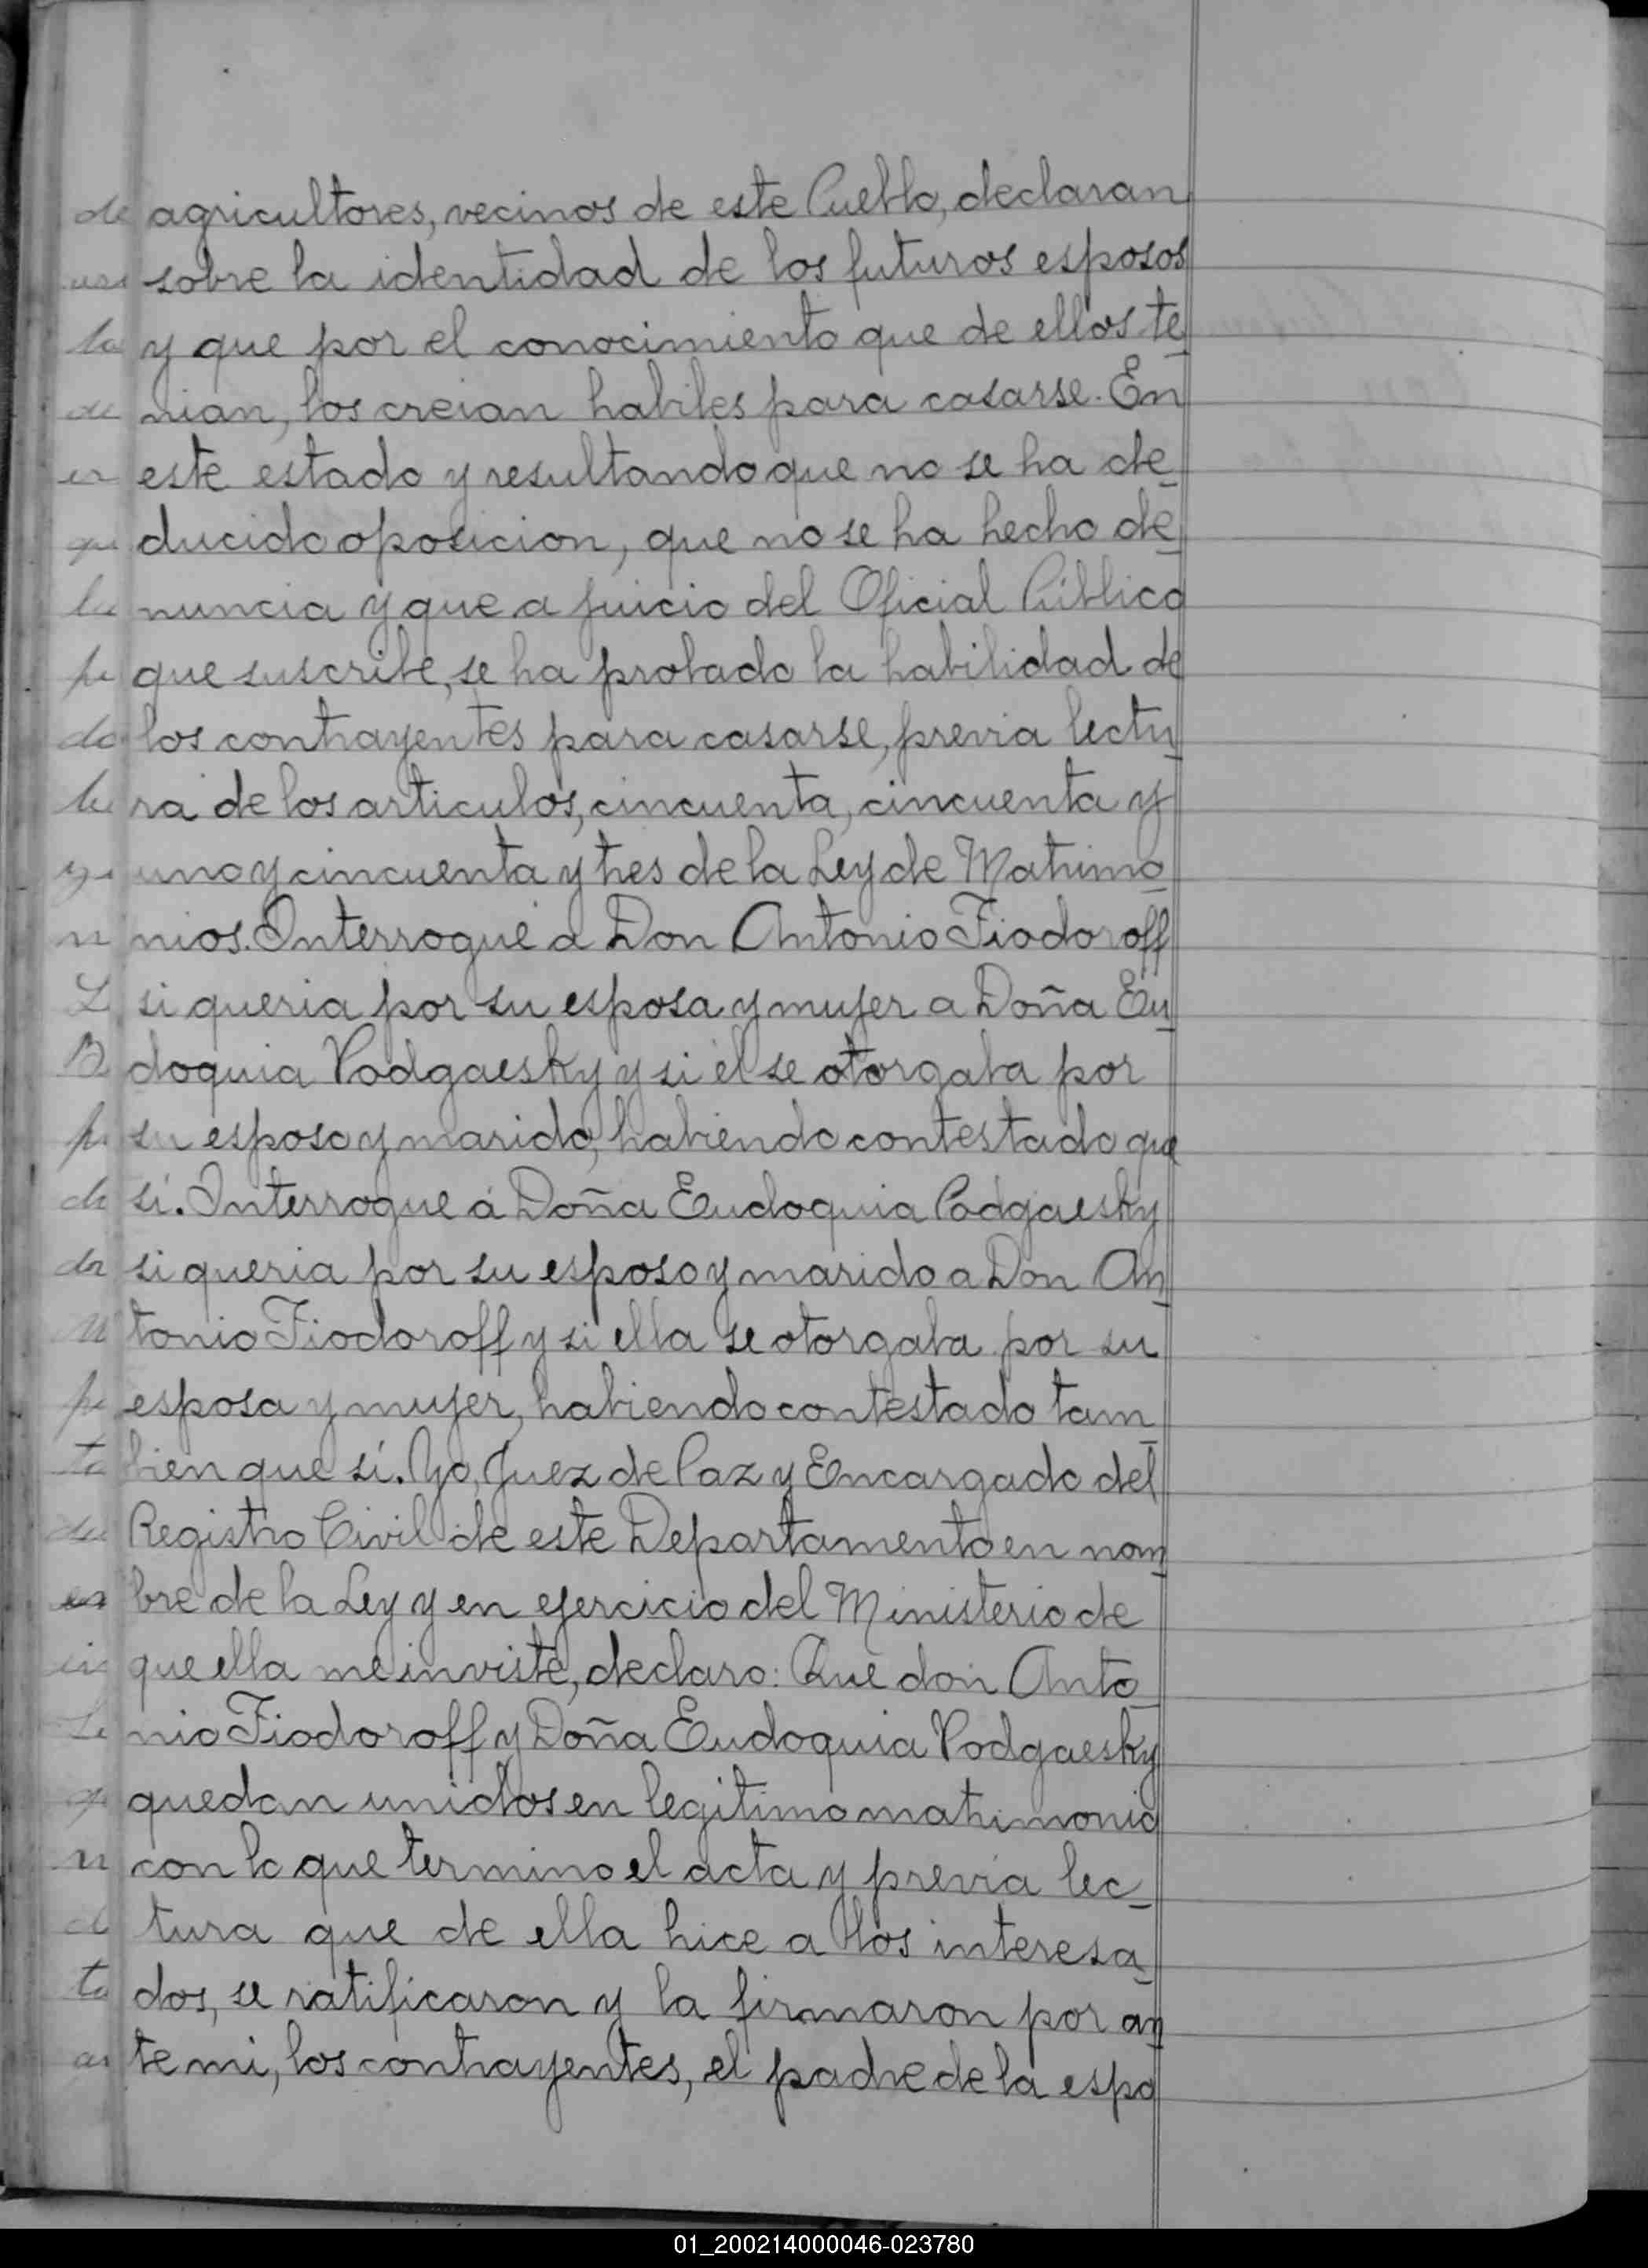 agricultores, vecinos de este Pueblo, declaran
sobre la identidad de los futuros esposos
y que por el conocimiento que de ellos te
nian, los creian habiles para casarse. En
este estado y resultando que no se ha de
ducido oposicion, que no se ha hecho de
nuncia y que a juicio del Oficial Público
que suscribe, se ha probado la habilidad de
los contrayentes para casarse, previa lectu
ra de los articulos, cincuenta, cincuenta y
uno y cincuenta y tres de la Ley de Matrimo
nios. Interrogué a Don Antonio Fiodoroff
si queria por su esposa y mujer a Doña Eu
doquia Podgaesky y si él se otorgaba por
su esposo y marido, habiendo contestado que
sí. Interrogue á Doña Eudoquia Podgaesky
si queria por su esposo y marido a Don An
tonio Fiodoroff y si ella se otorgaba por su
esposa y mujer, habiendo contestado tam
bien que sí. Yo, Juez de Paz y Encargado del
Registro Civil de este Departamento en nom
bre de la Ley y en ejercicio del Ministerio de
que ella me inviste, declaro: Que don Anto
nio Fiodoroff y Doña Eudoquia Podgaesky
quedan unidos en legitimo matrimonio
con lo que termino el acta y previa lec
tura que de ella hice a los interesa
dos, se ratificaron y la firmaron por an
te mi, los contrayentes, el padre de la espo
01_200214000046-023780